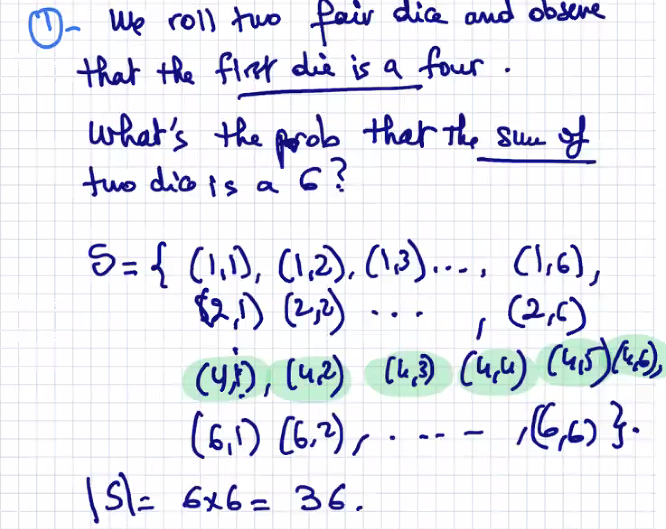 ①- We roll two fair dice and observe
that the first die is a four.
What's the prob that the sum of
two dice is a 6?
S = { (1,1), (1,2), (1,3)...., (1,6),
(2,1) (2,2) ... , (2,6)
(4,1), (4,2) (4,3) (4,4) (4,5) (4,6),
(6,1) (6,2), . . -- - , (6,6) }.
|S| = 6x6 = 36.